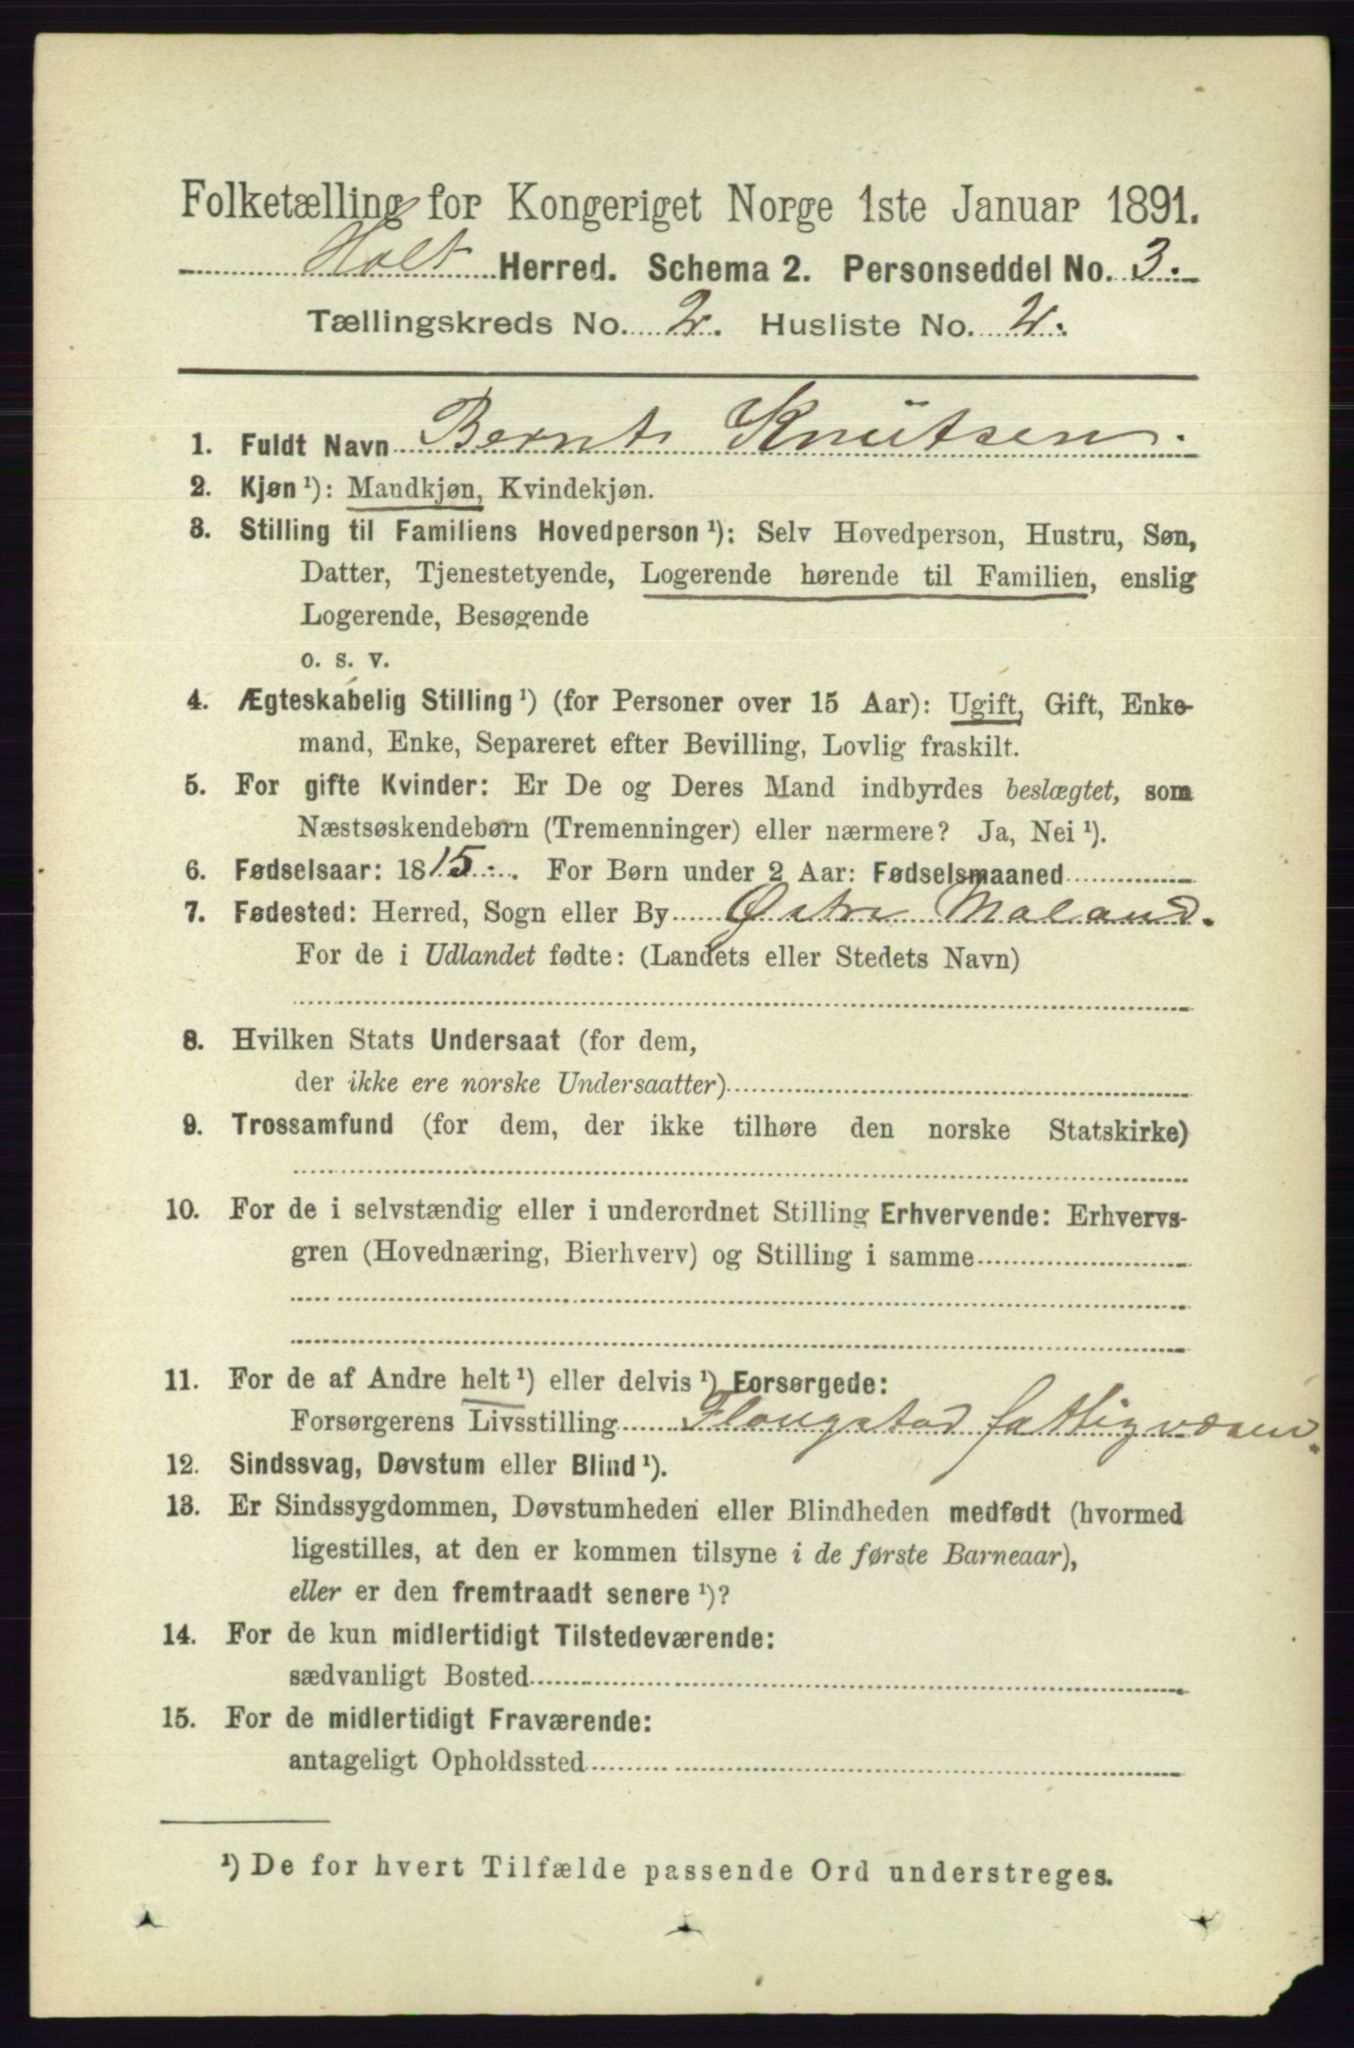 Folketælling for Kongeriget Norge 1ste Januar 1891.
Holt Herred. Schema 2. Personseddel No. 3.
Tællingskreds No. 2. Husliste No. 2.
1. Fuldt Navn Bernt Knutsen.
2. Kjøn ¹): Mandkjøn, Kvindekjøn.
3. Stilling til Familiens Hovedperson ¹): Selv Hovedperson, Hustru, Søn,
Datter, Tjenestetyende, Logerende hørende til Familien, enslig
Logerende, Besøgende
o. s. v.
4. Ægteskabelig Stilling ¹) (for Personer over 15 Aar): Ugift, Gift, Enke-
mand, Enke, Separeret efter Bevilling, Lovlig fraskilt.
5. For gifte Kvinder: Er De og Deres Mand indbyrdes beslægtet, som
Næstsøskendebørn (Tremenninger) eller nærmere? Ja, Nei ¹).
6. Fødselsaar: 1815. For Børn under 2 Aar: Fødselsmaaned
7. Fødested: Herred, Sogn eller By Østre Moland.
For de i Udlandet fødte: (Landets eller Stedets Navn)
8. Hvilken Stats Undersaat (for dem,
der ikke ere norske Undersaatter)
9. Trossamfund (for dem, der ikke tilhøre den norske Statskirke)
10. For de i selvstændig eller i underordnet Stilling Erhvervende: Erhvervs-
gren (Hovednæring, Bierhverv) og Stilling i samme
11. For de af Andre helt ¹) eller delvis ¹) Forsørgede:
Forsørgerens Livsstilling fattigvæsen.
12. Sindssvag, Døvstum eller Blind ¹).
13. Er Sindssygdommen, Døvstumheden eller Blindheden medfødt (hvormed
ligestilles, at den er kommen tilsyne i de første Barneaar),
eller er den fremtraadt senere ¹)?
14. For de kun midlertidigt Tilstedeværende:
sædvanligt Bosted
15. For de midlertidigt Fraværende:
antageligt Opholdssted
¹) De for hvert Tilfælde passende Ord understreges.